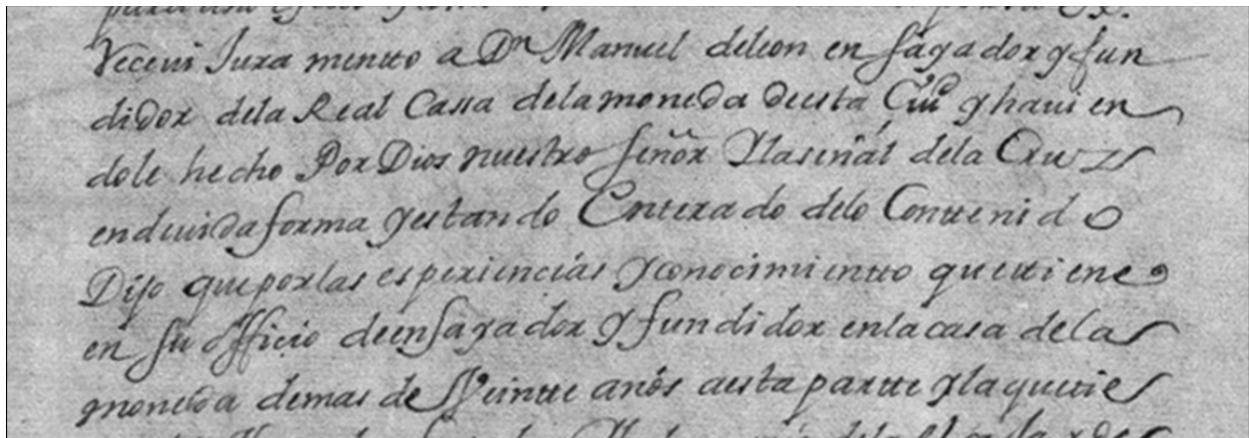 Receui Juramento a Dn Manuel deleon ensayador y fun
didor dela Real Cassa delamoneda deesta Ciud y hauien
dole hecho Por Dios nuestro señor Ylaseñal dela Cruz
endeuida forma yestando Enterado delo Conttenido
Dijo queporlas esperiencias yconocimientto quettiene
en su officio deensayador y fundidor enlacasa dela
moneda demas de Veintte años aesta partte ylaquetie